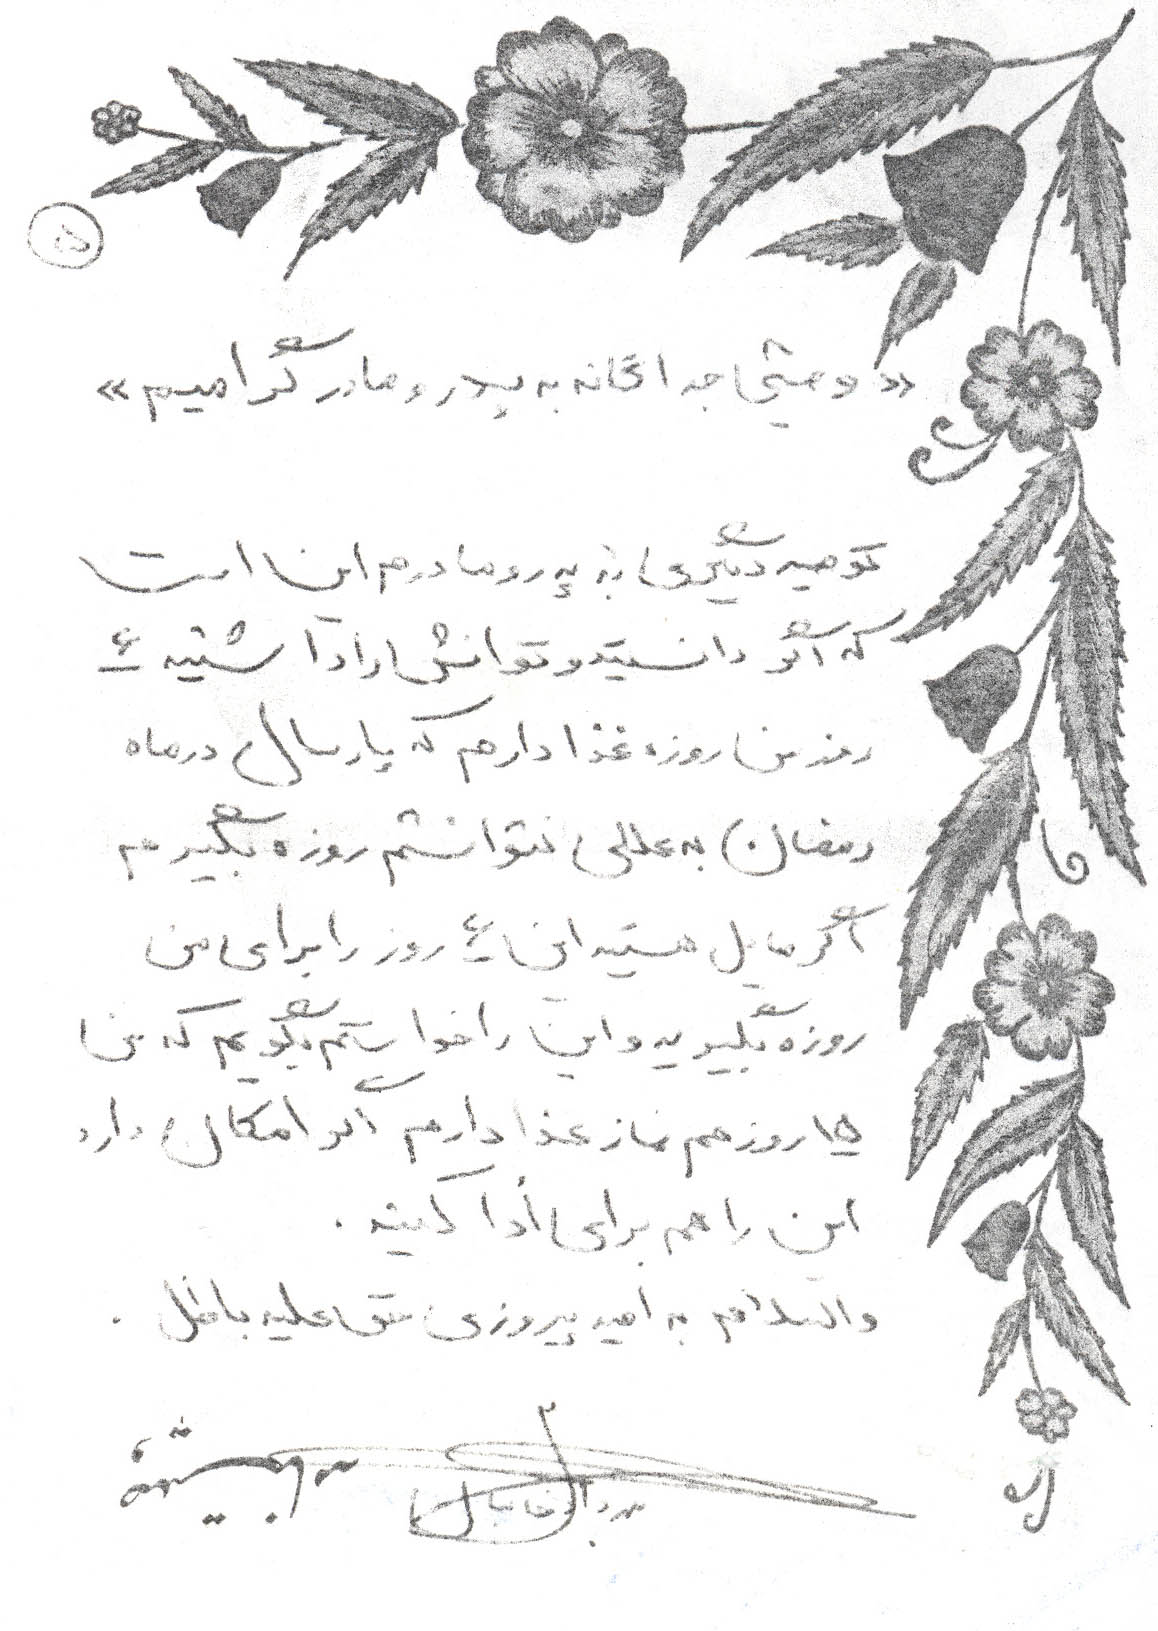 «دو وصیتی جداگانه به پدر و مادر گرامیم»
توصیه دیگری به پدر و مادرم این است
که اگر دانستید و توانش را داشتید ۶
روز من روزه غذا دارم که پارسال در ماه
رمضان به عللی نتوانستم روزه بگیرم
اگر مایل هستید این ۶ روز را برای من
روزه بگیرید و این را خواستم بگویم که من
۱۵ روز هم نماز غذا دارم اگر امکان دارد
این را هم برای ادا کنید.
والسلام به امید پیروزی حق علیه باطل.